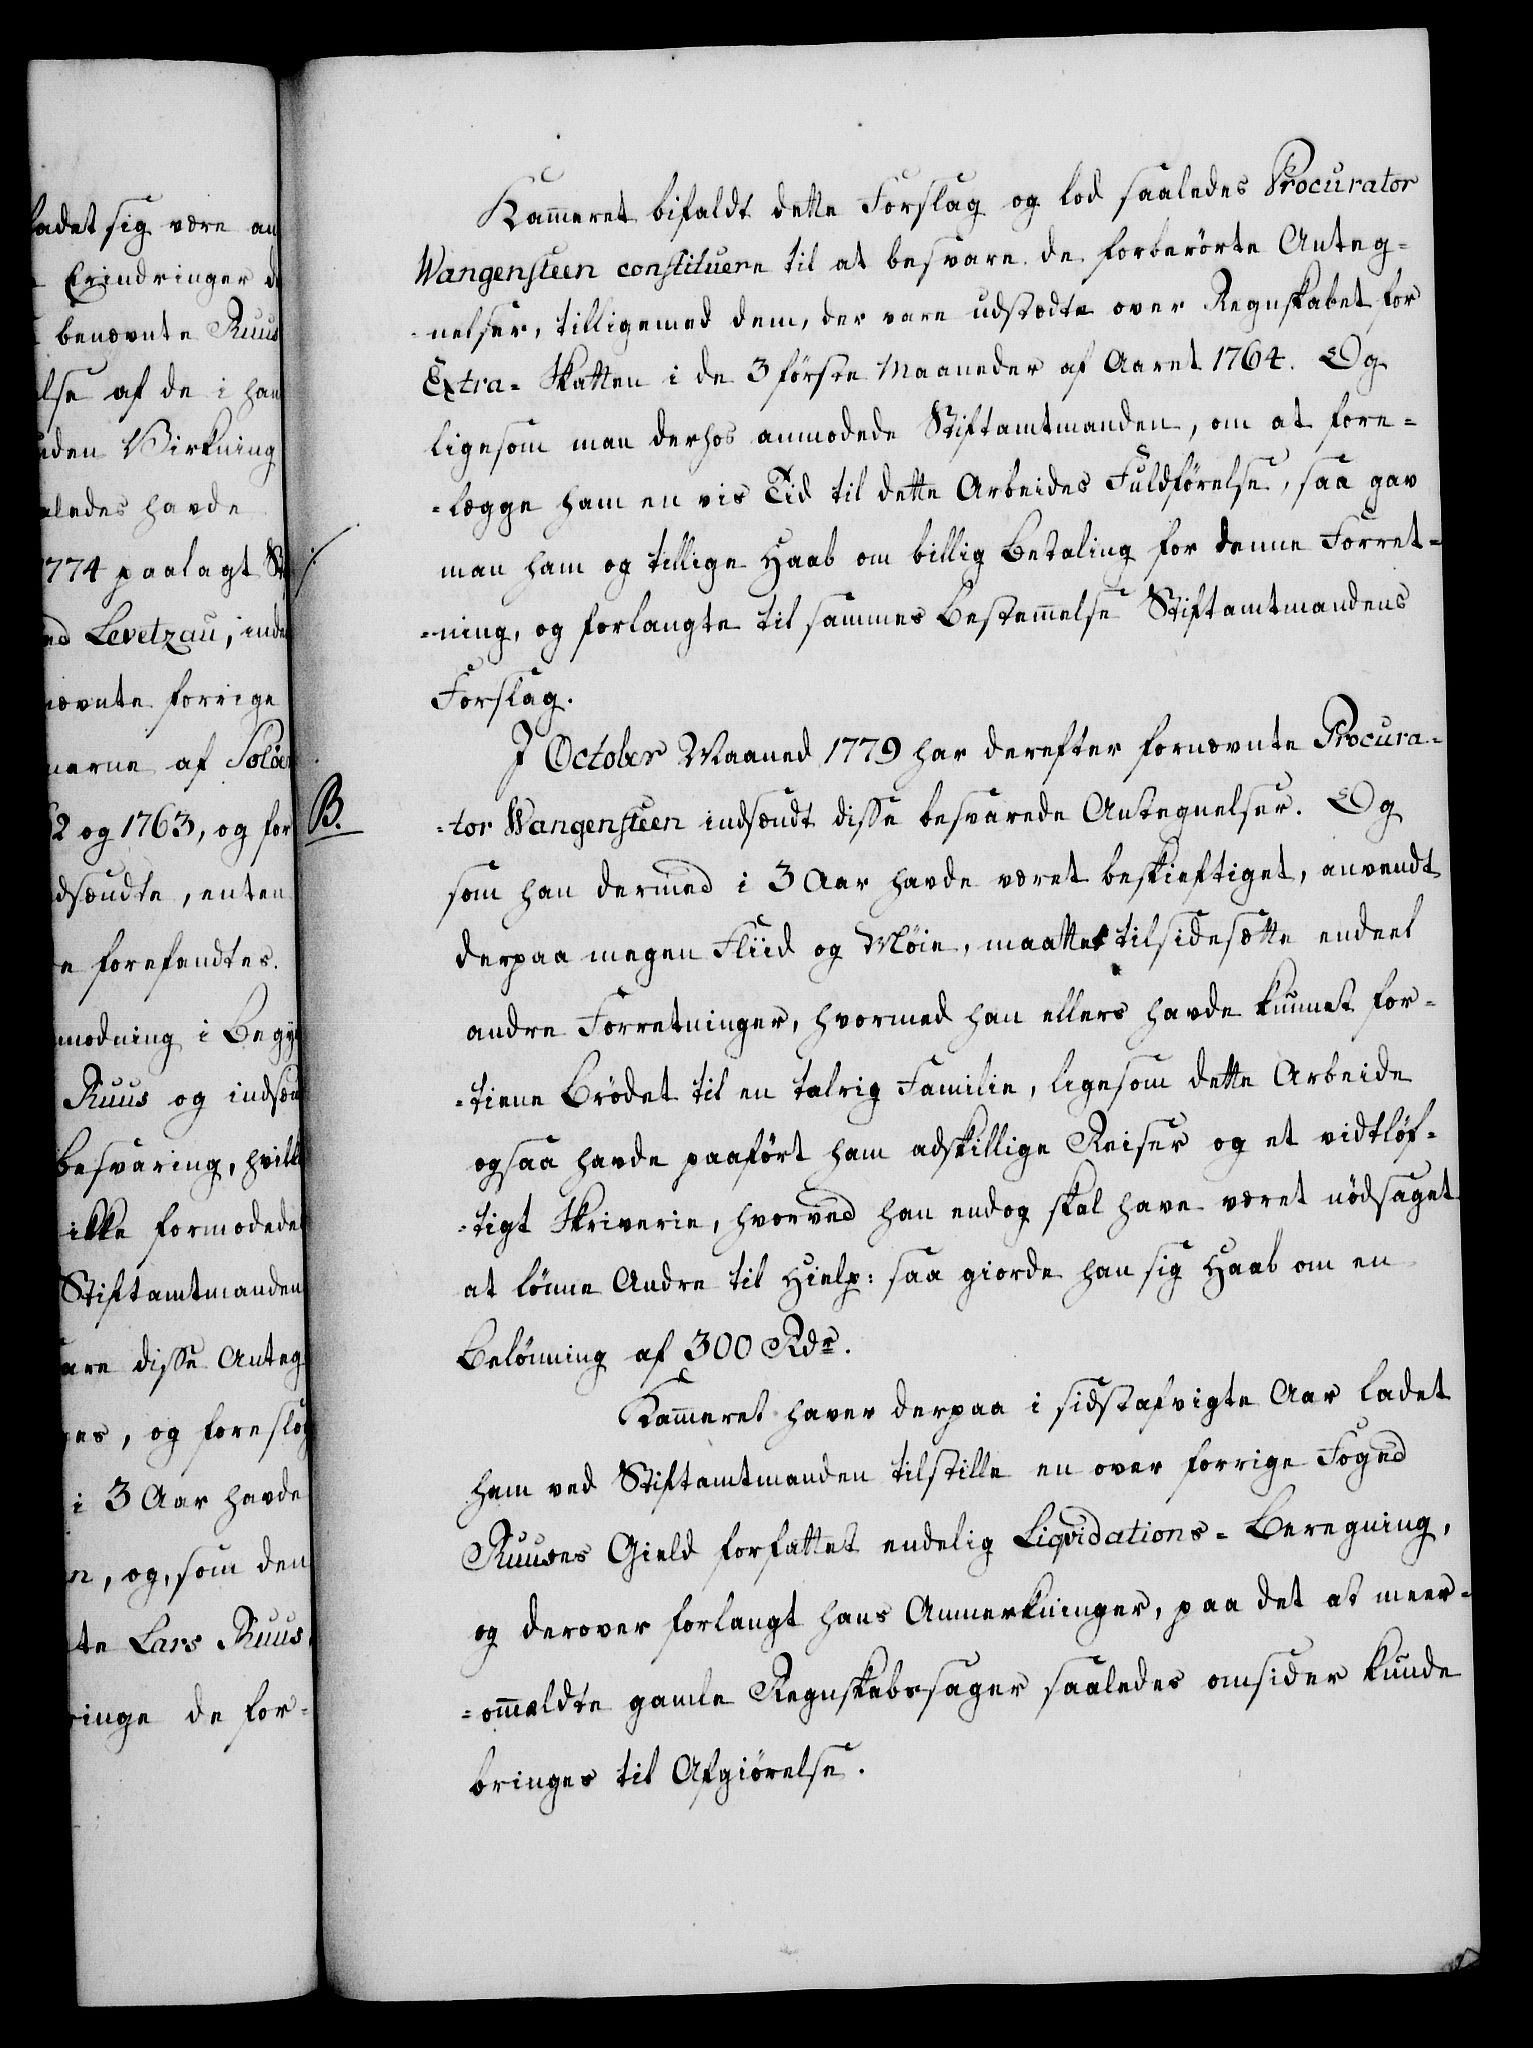 ladet sig være an
Erindringer d
benævnte Ruus
lse af de i han
uden Virkning
aledes havde
1774 paalagt St
ed Levetzau, inde
nævnte forrige
nerne af Solöe
2 og 1763, og for
dsændte, enten
e forefandtes.
modning i Begy
Ruus og indsæn
besvaring, hvilk
ikke formodede
Stiftamtmanden
are disse Anteg
es, og foreslog
i 3 Aar havde
n, og, som den
te Lars Ruus
ringe de for-
Kam̄eret bifaldt dette Forslag og lod saaledes Procurator
Wangensteen constituere til at besvare de forberörte Anteg-
-nelser, tilligemed dem, der vare udstædte over Regnskabet for
Extra-Skatten i de 3 förste Maaneder af Aaret 1764. Og
ligesom man derhos anmodede Stiftamtmanden, om at fore-
-lægge ham en vis Tid til dette Arbeides Fuldförelse, saa gav
man ham og tillige Haab om billig Betaling for denne Forret-
-ning, og forlangte til sammes Bestem̄else Stiftamtmandens
Forslag.
I October Maaned 1779 har derefter fornævnte Procura-
B.
-tor Wangensteen indsændt disse besvarede Antegnelser. Og
som han dermed i 3 Aar havde været beskieftiget, anvendt
derpaa megen Fliid og Möie, maattet tilsidesætte endeel
andre Forretninger, hvormed han ellers havde kunnet for-
-tiene Brödet til en talrig Familie, ligesom dette Arbeide
ogsaa havde paafört ham adskillige Reiser og et vidtlöf-
-tigt Skriverie, hvorved han endog skal have været nödsaget
at lönne Andre til Hielp: saa giorde han sig Haab om en
Belönning af 300 Rdr.
Kam̄eret haver derpaa i sidstafvigte Aar ladet
ham ved Stiftamtmanden tilstille en over forrige Foged
Ruuses Gield forfattet endelig Liqvidations-Beregning,
og derover forlangt hans Anmerkninger, paa det at meer-
-om̄eldte gamle Regnskabssager saaledes omsider kunde
bringes til Afgiörelse.